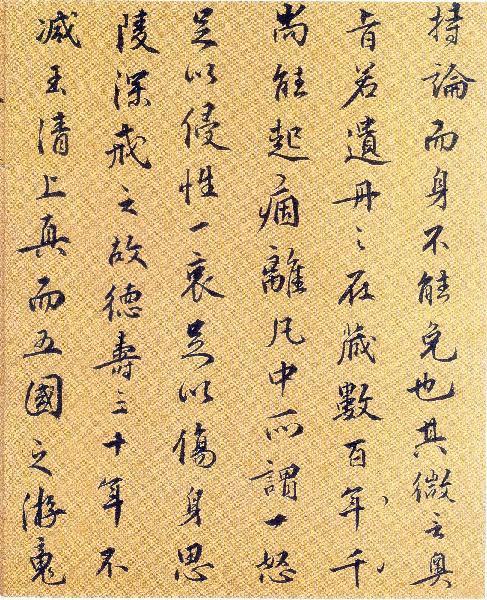 持論而身不能免也其微言奧
旨若遺丹之在藏數百年千
尚能起痼離凡中所謂一怒
足以侵性一哀足以傷身思
陵深戒之故德壽三十年不
減玉清上真而五國之游魂